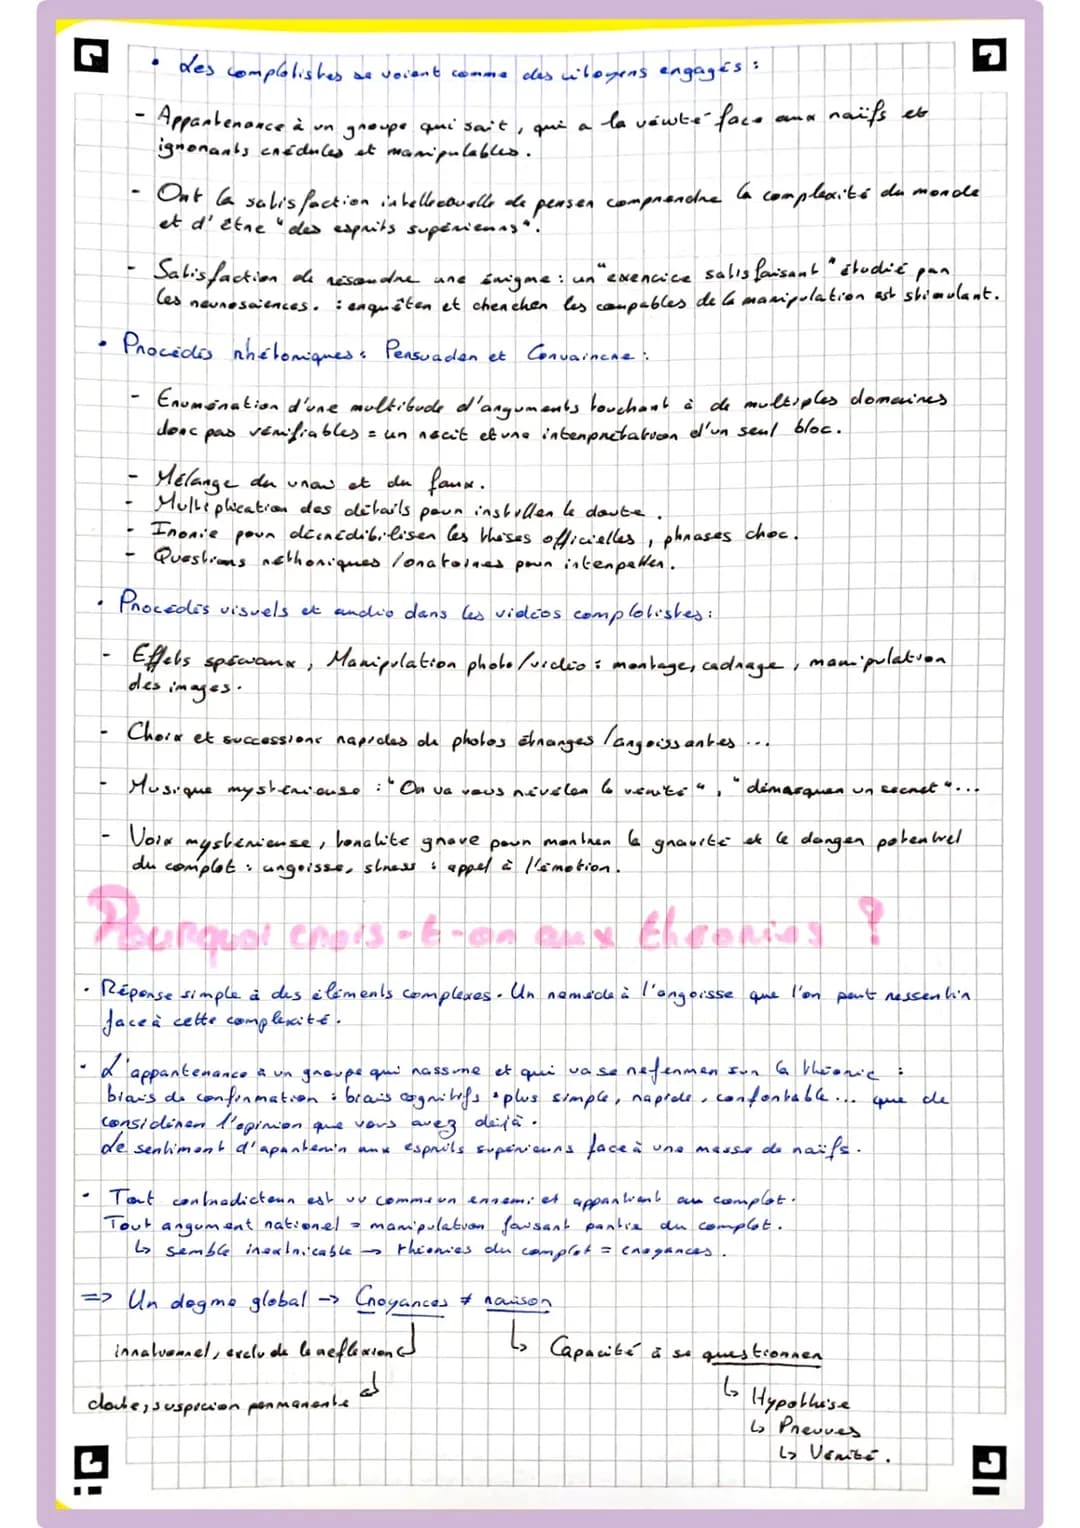 • Les complotistes se voient comme des citoyens engagés :
- Appartenance à un groupe qui sait, qui a la vérité face aux naïfs et
ignorants crédules et manipulables.
- Ont la satisfaction intellectuelle de penser comprendre la complexité du monde
et d'être "des esprits supérieurs".
- Satisfaction de résoudre une énigme : un "exercice satisfaisant" étudié par
les neurosciences. : enquêter et chercher les coupables de la manipulation est stimulant.
• Procédés rhétoriques : Persuader et Convaincre :
- Enumération d'une multitude d'arguments touchant à de multiples domaines
donc pas vérifiables = un récit et une interprétation d'un seul bloc.
- Mélange du vrai et du faux.
- Multiplication des détails pour installer le doute.
- Ironie pour décrédibiliser les thèses officielles, phrases choc.
- Questions réthoriques / oratoires pour interpeller.
• Procédés visuels et audio dans les vidéos complotistes :
- Effets spéciaux, Manipulation photo/vidéo : montage, cadrage, manipulation
des images.
- Choix et successions rapides de photos étranges /angoissantes ...
- Musique mystérieuse : "On va vous révéler la vérité", "démasquer un secret"...
- Voix mystérieuse, tonalité grave pour montrer la gravité et le danger potentiel
du complot : angoisse, stress : appel à l'émotion.
Pourquoi crois-t-on aux théories ?
• Réponse simple à des éléments complexes. Un remède à l'angoisse que l'on peut ressentir
face à cette complexité.
• L'appartenance à un groupe qui rassure et qui va se refermer sur la théorie :
biais de confirmation : biais cognitifs • plus simple, rapide, confortable... que de
considérer l'opinion que vous avez déjà.
Le sentiment d'apartenir aux esprits supérieurs face à une masse de naïfs.
• Tout contradicteur est vu comme un ennemi et appartient au complot.
Tout argument rationel = manipulation faisant partie du complot.
↳ semble inextricable → théories du complot = croyances.
=> Un dogme global → Croyances ≠ raison
irrationnel, exclu de la réflexion ↲ ↳ Capacité à se questionner
doute, suspicion permanente ↲ ↳ Hypothèse
↳ Preuves
↳ Vérité.